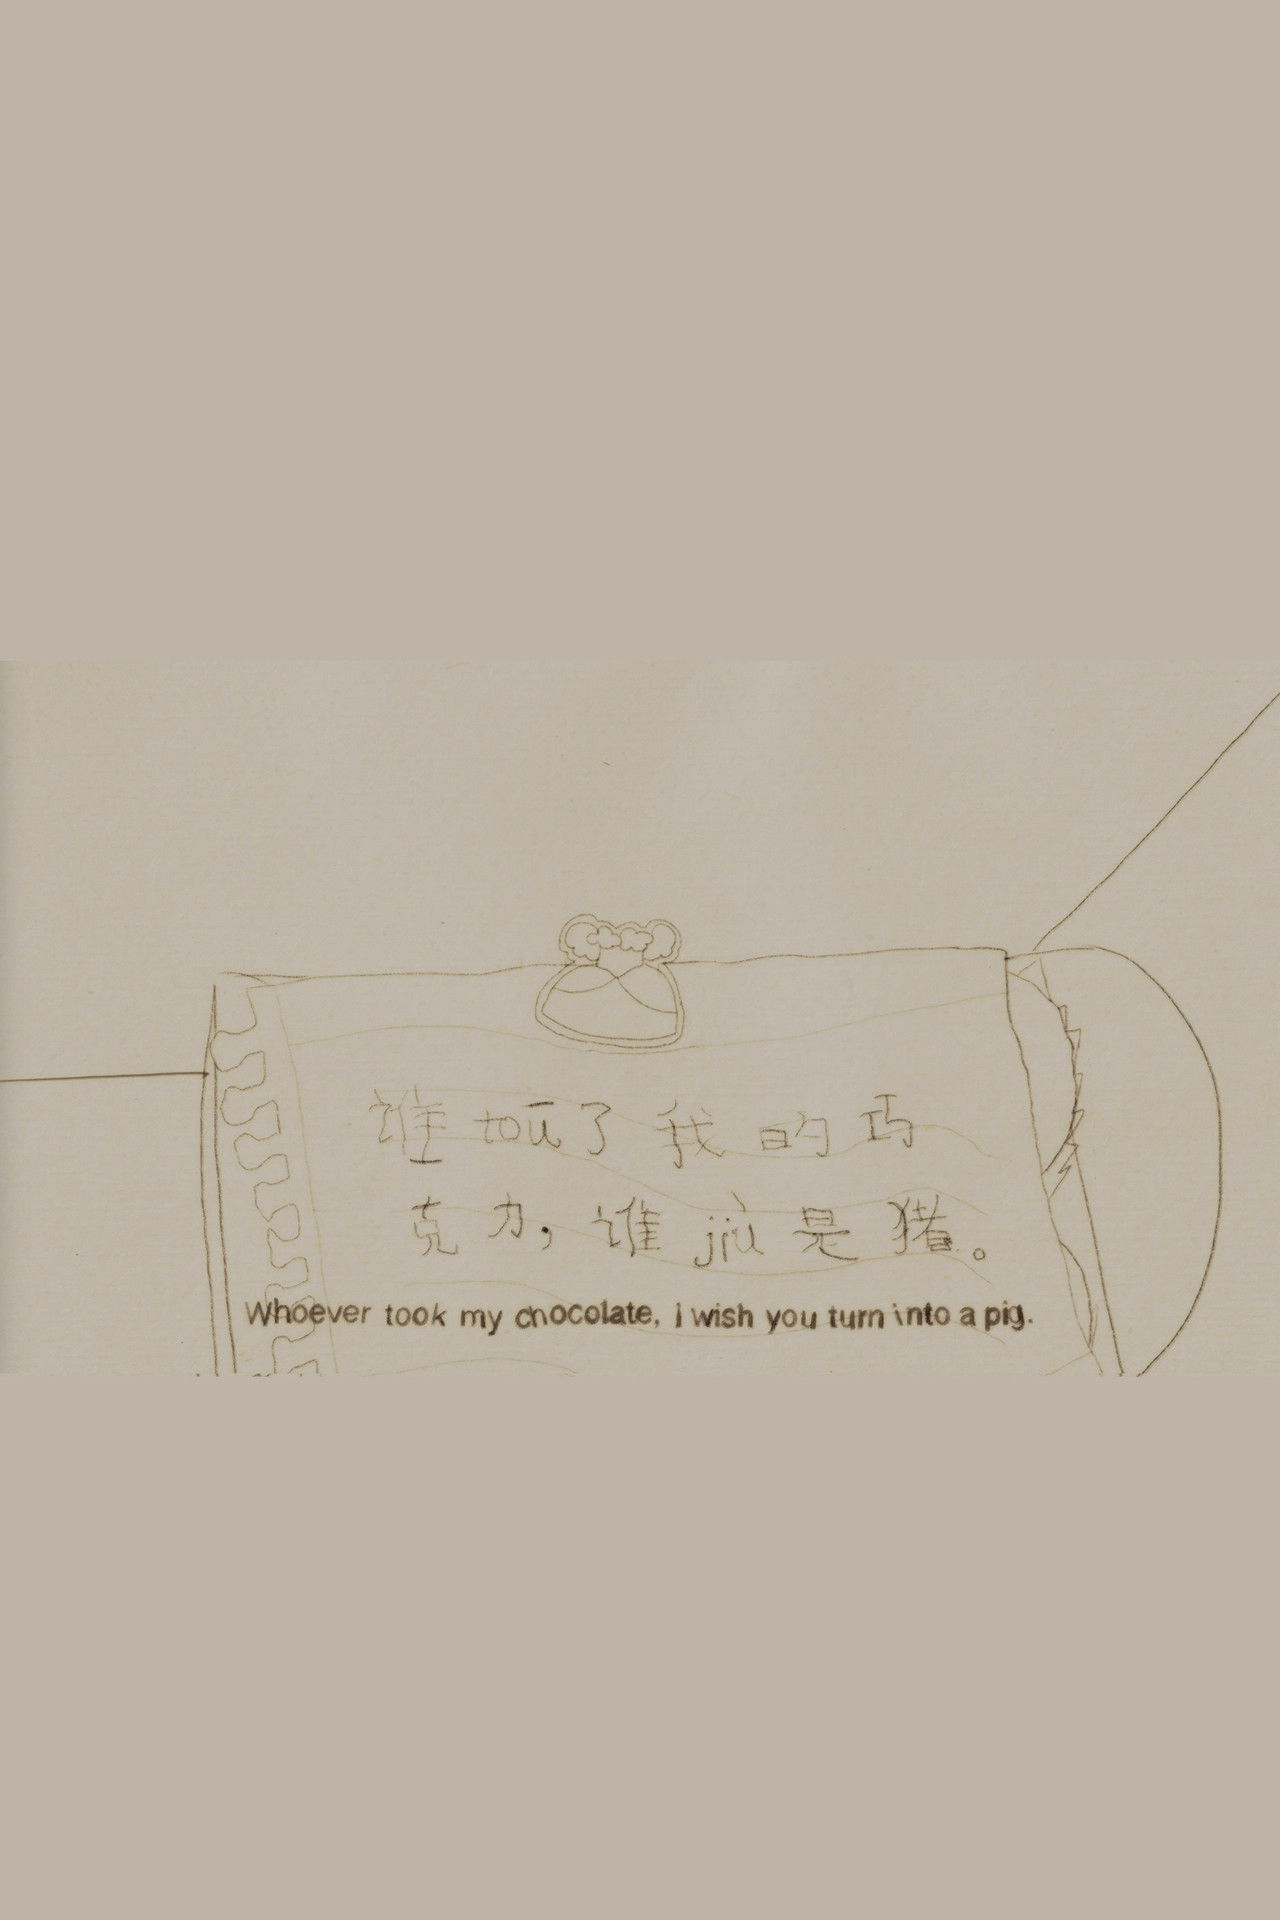 谁 toū了 我 的 巧
克 力，谁 jiù 是 猪。
Whoever took my chocolate, I wish you turn into a pig.